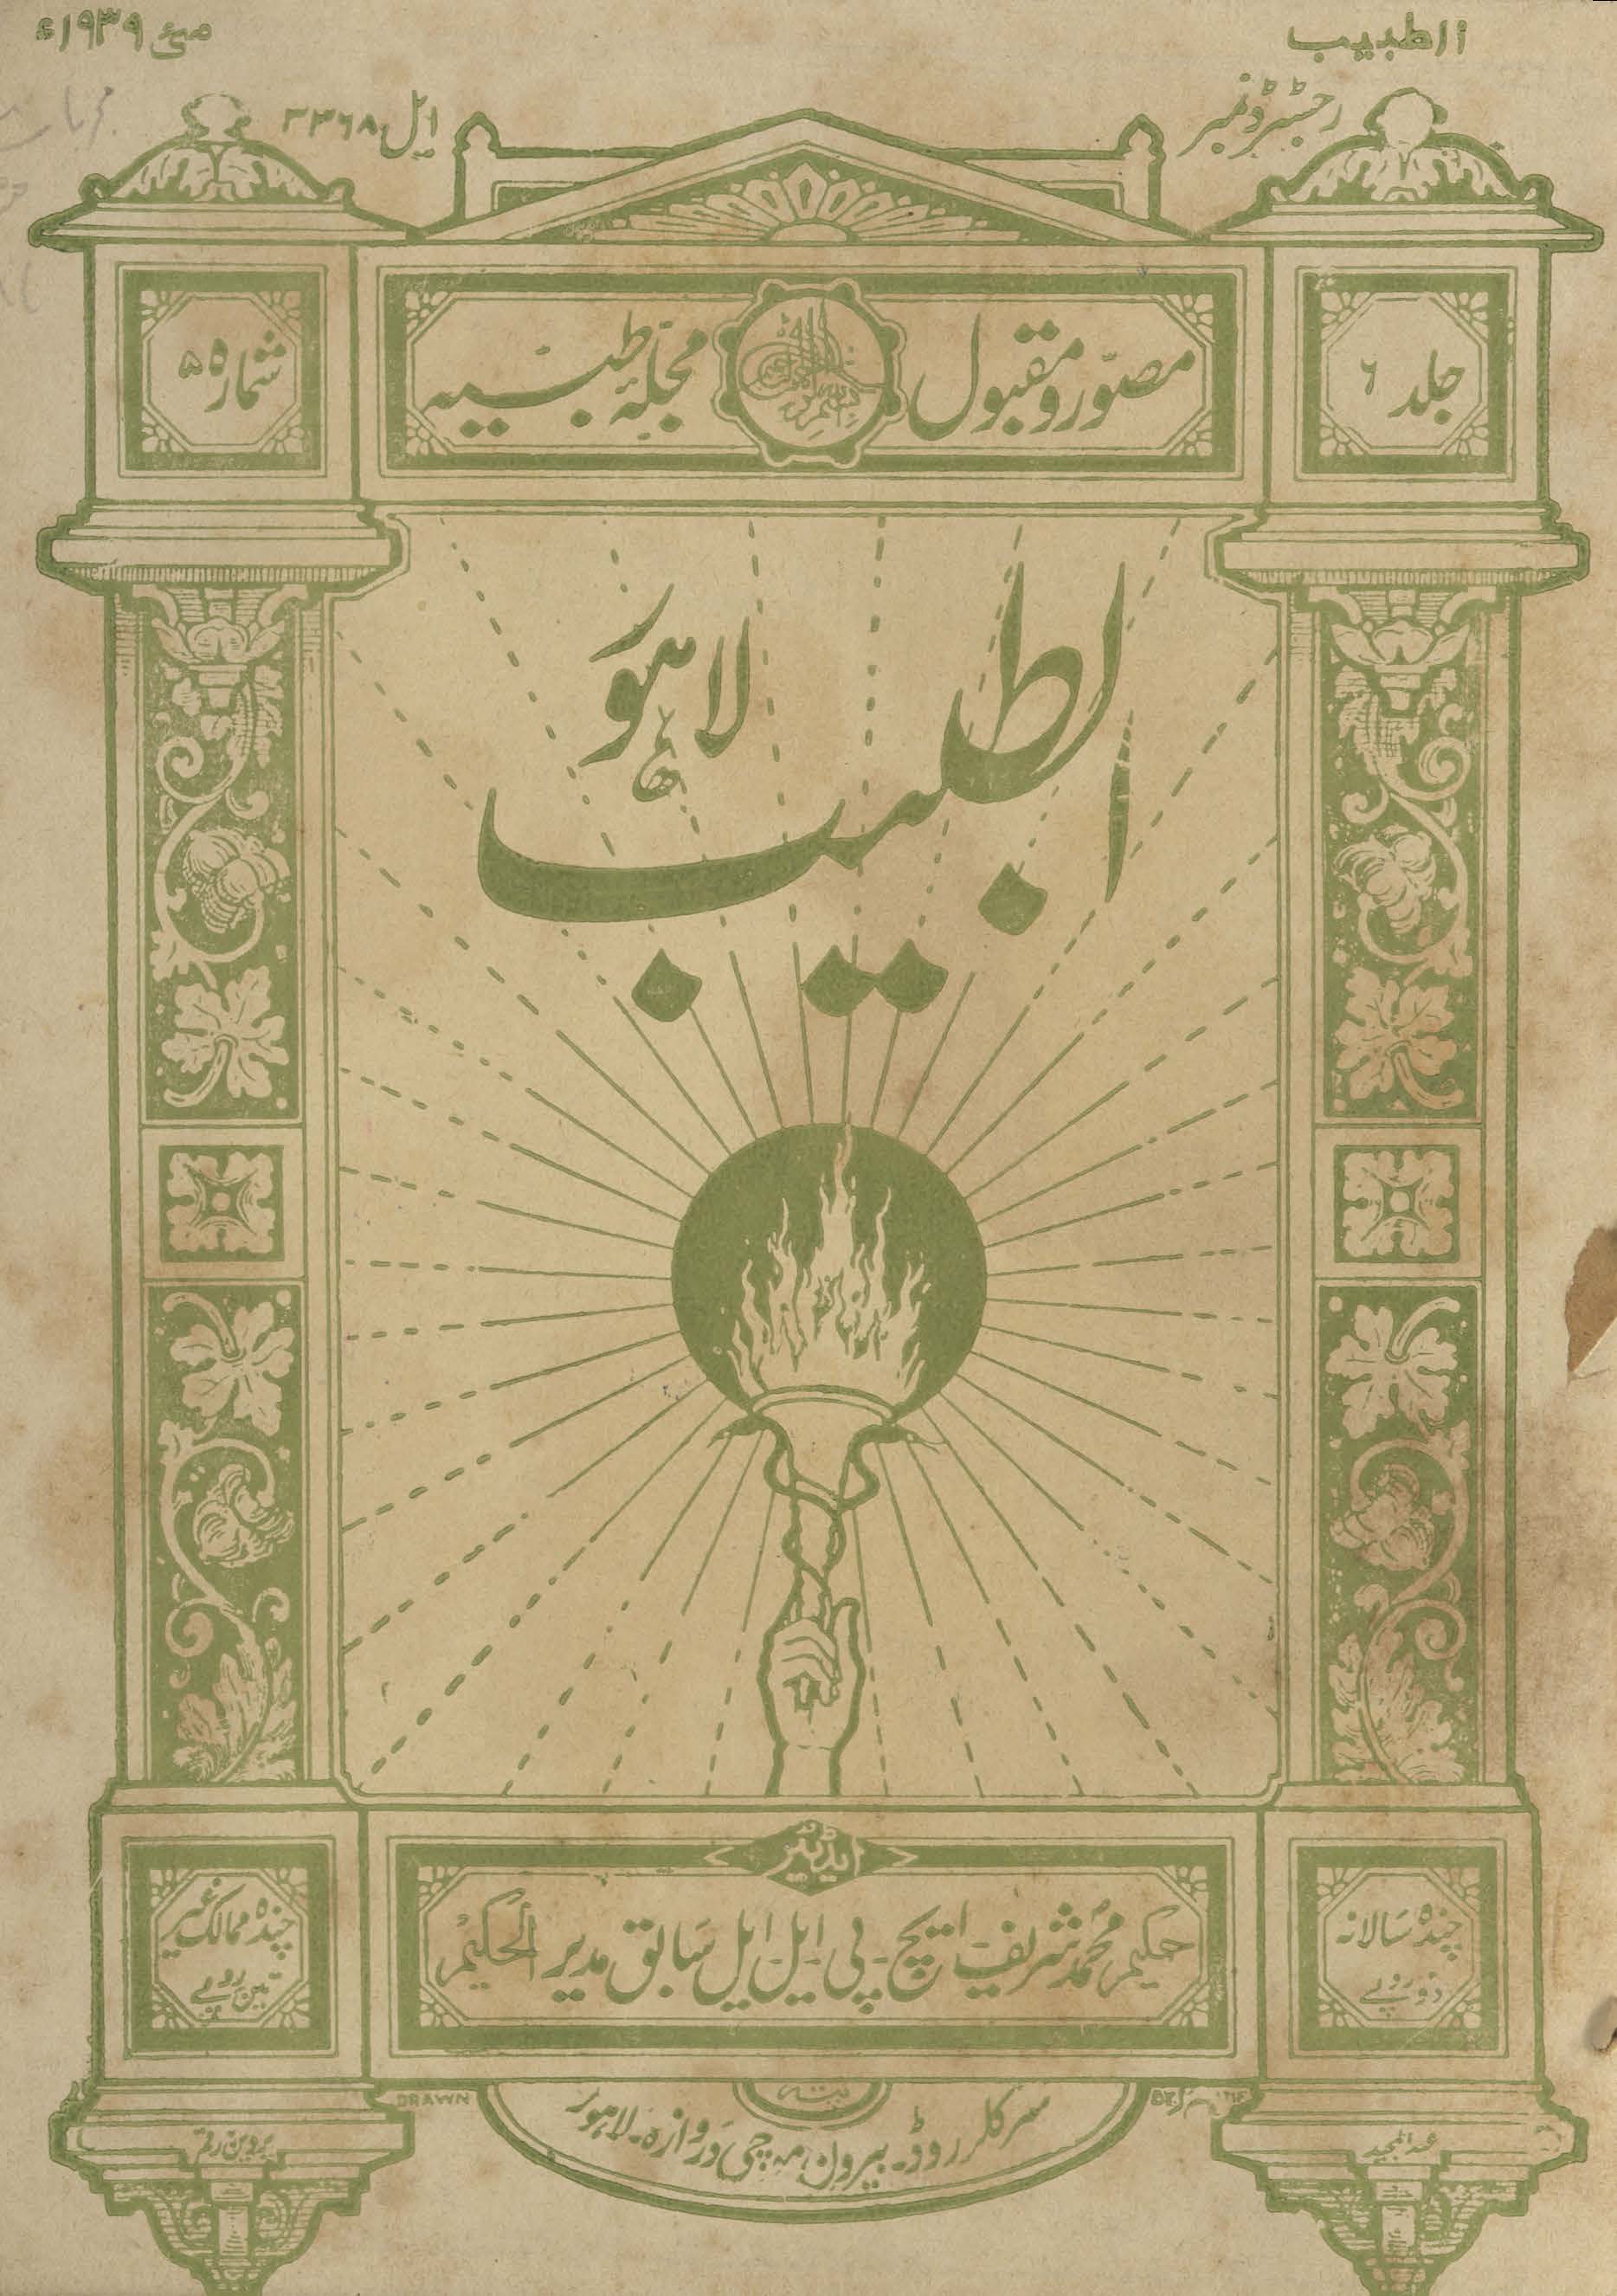 الطبیب
مئی ۱۹۳۹ء
رجسٹرڈ نمبر
ایل ۳۳۶۸
جلد ۶
مصوّر و مقبول
مجلّہ طبّیہ
شمارہ ۵
الطبیب
لاہور
ایڈیٹر
چندہ سالانہ
دو روپے
حکیم محمد شریف ایچ۔پی۔ایل۔ایل سابق مدیر الحکیم
چندہ ممالک غیر
تین روپے
DRAWN
BY
پتہ
سرکلر روڈ۔ بیرون موچی دروازہ۔ لاہور
عبدالمجید
پروین رقم